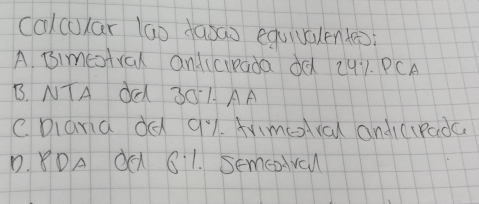 Calcular las tasas equivalentes:
A. Bimestral anticipada del 24% PCA
B. NTA del 30% AA
C. Diaria del 9% trimestral anticipada
D. PDA del 6% semestral